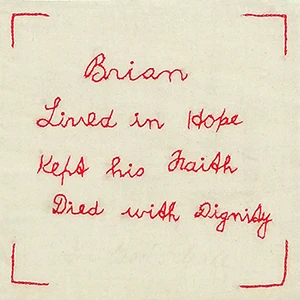 Brian
Lived in Hope
Kept his Faith
Died with Dignity